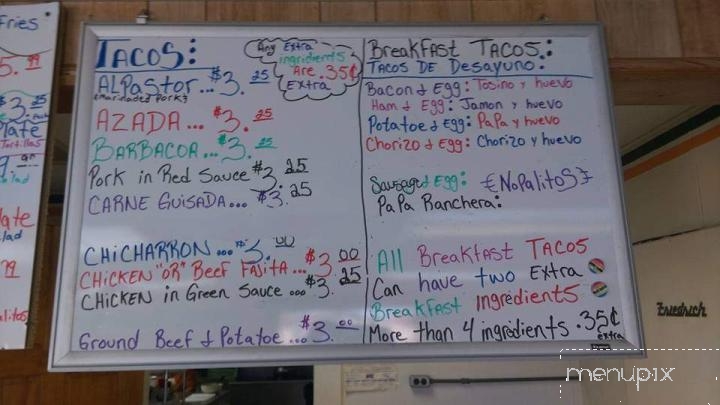 Fries
5.99
$3.25
Plate
Tortillas
alad
late
lad
99
alitos
TACOS:
Any Extra
ingredients
Are .35¢
Extra
ALPASTOR... $3.25
(marinaded Pork)
AZADA... $3.25
BARBACOA... $3.25
Pork in Red Sauce $3.25
CARNE GUISADA... $3.25
CHICHARRON... $3.00
CHICKEN "OR" Beef FAJITA... $3.00
CHICKEN in Green Sauce... $3.25
Ground Beef & Potatoe... $3.00
Breakfast TACOS:
TACOS DE Desayuno:
Bacon & Egg: Tosino y huevo
Ham & Egg: Jamon y huevo
Potatoe & Egg: PaPa y Huevo
Chorizo & Egg: Chorizo y huevo
Sausage & Egg: {NoPalitos}
PaPa Ranchera:
All Breakfast TACOS
Can have two Extra
Breakfast ingredients
More than 4 ingredients .35¢
extra
Friedrich
menupix